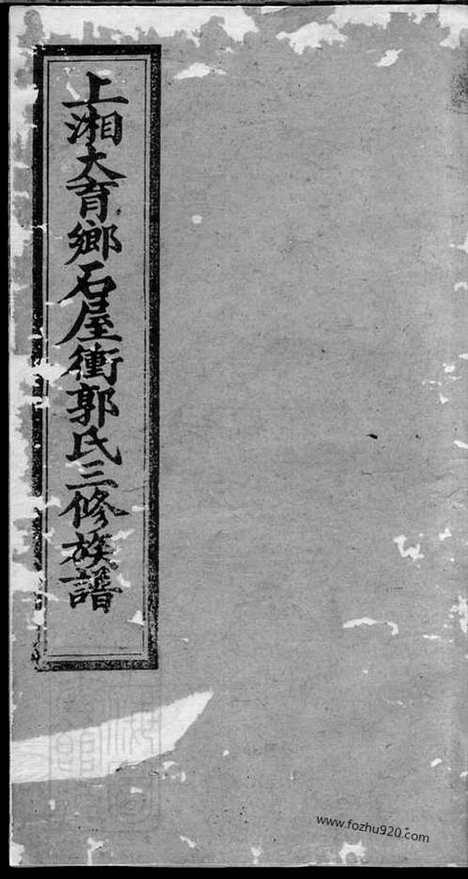 上湘大育鄉石屋衝郭氏三修族譜
www.fozhu920.com